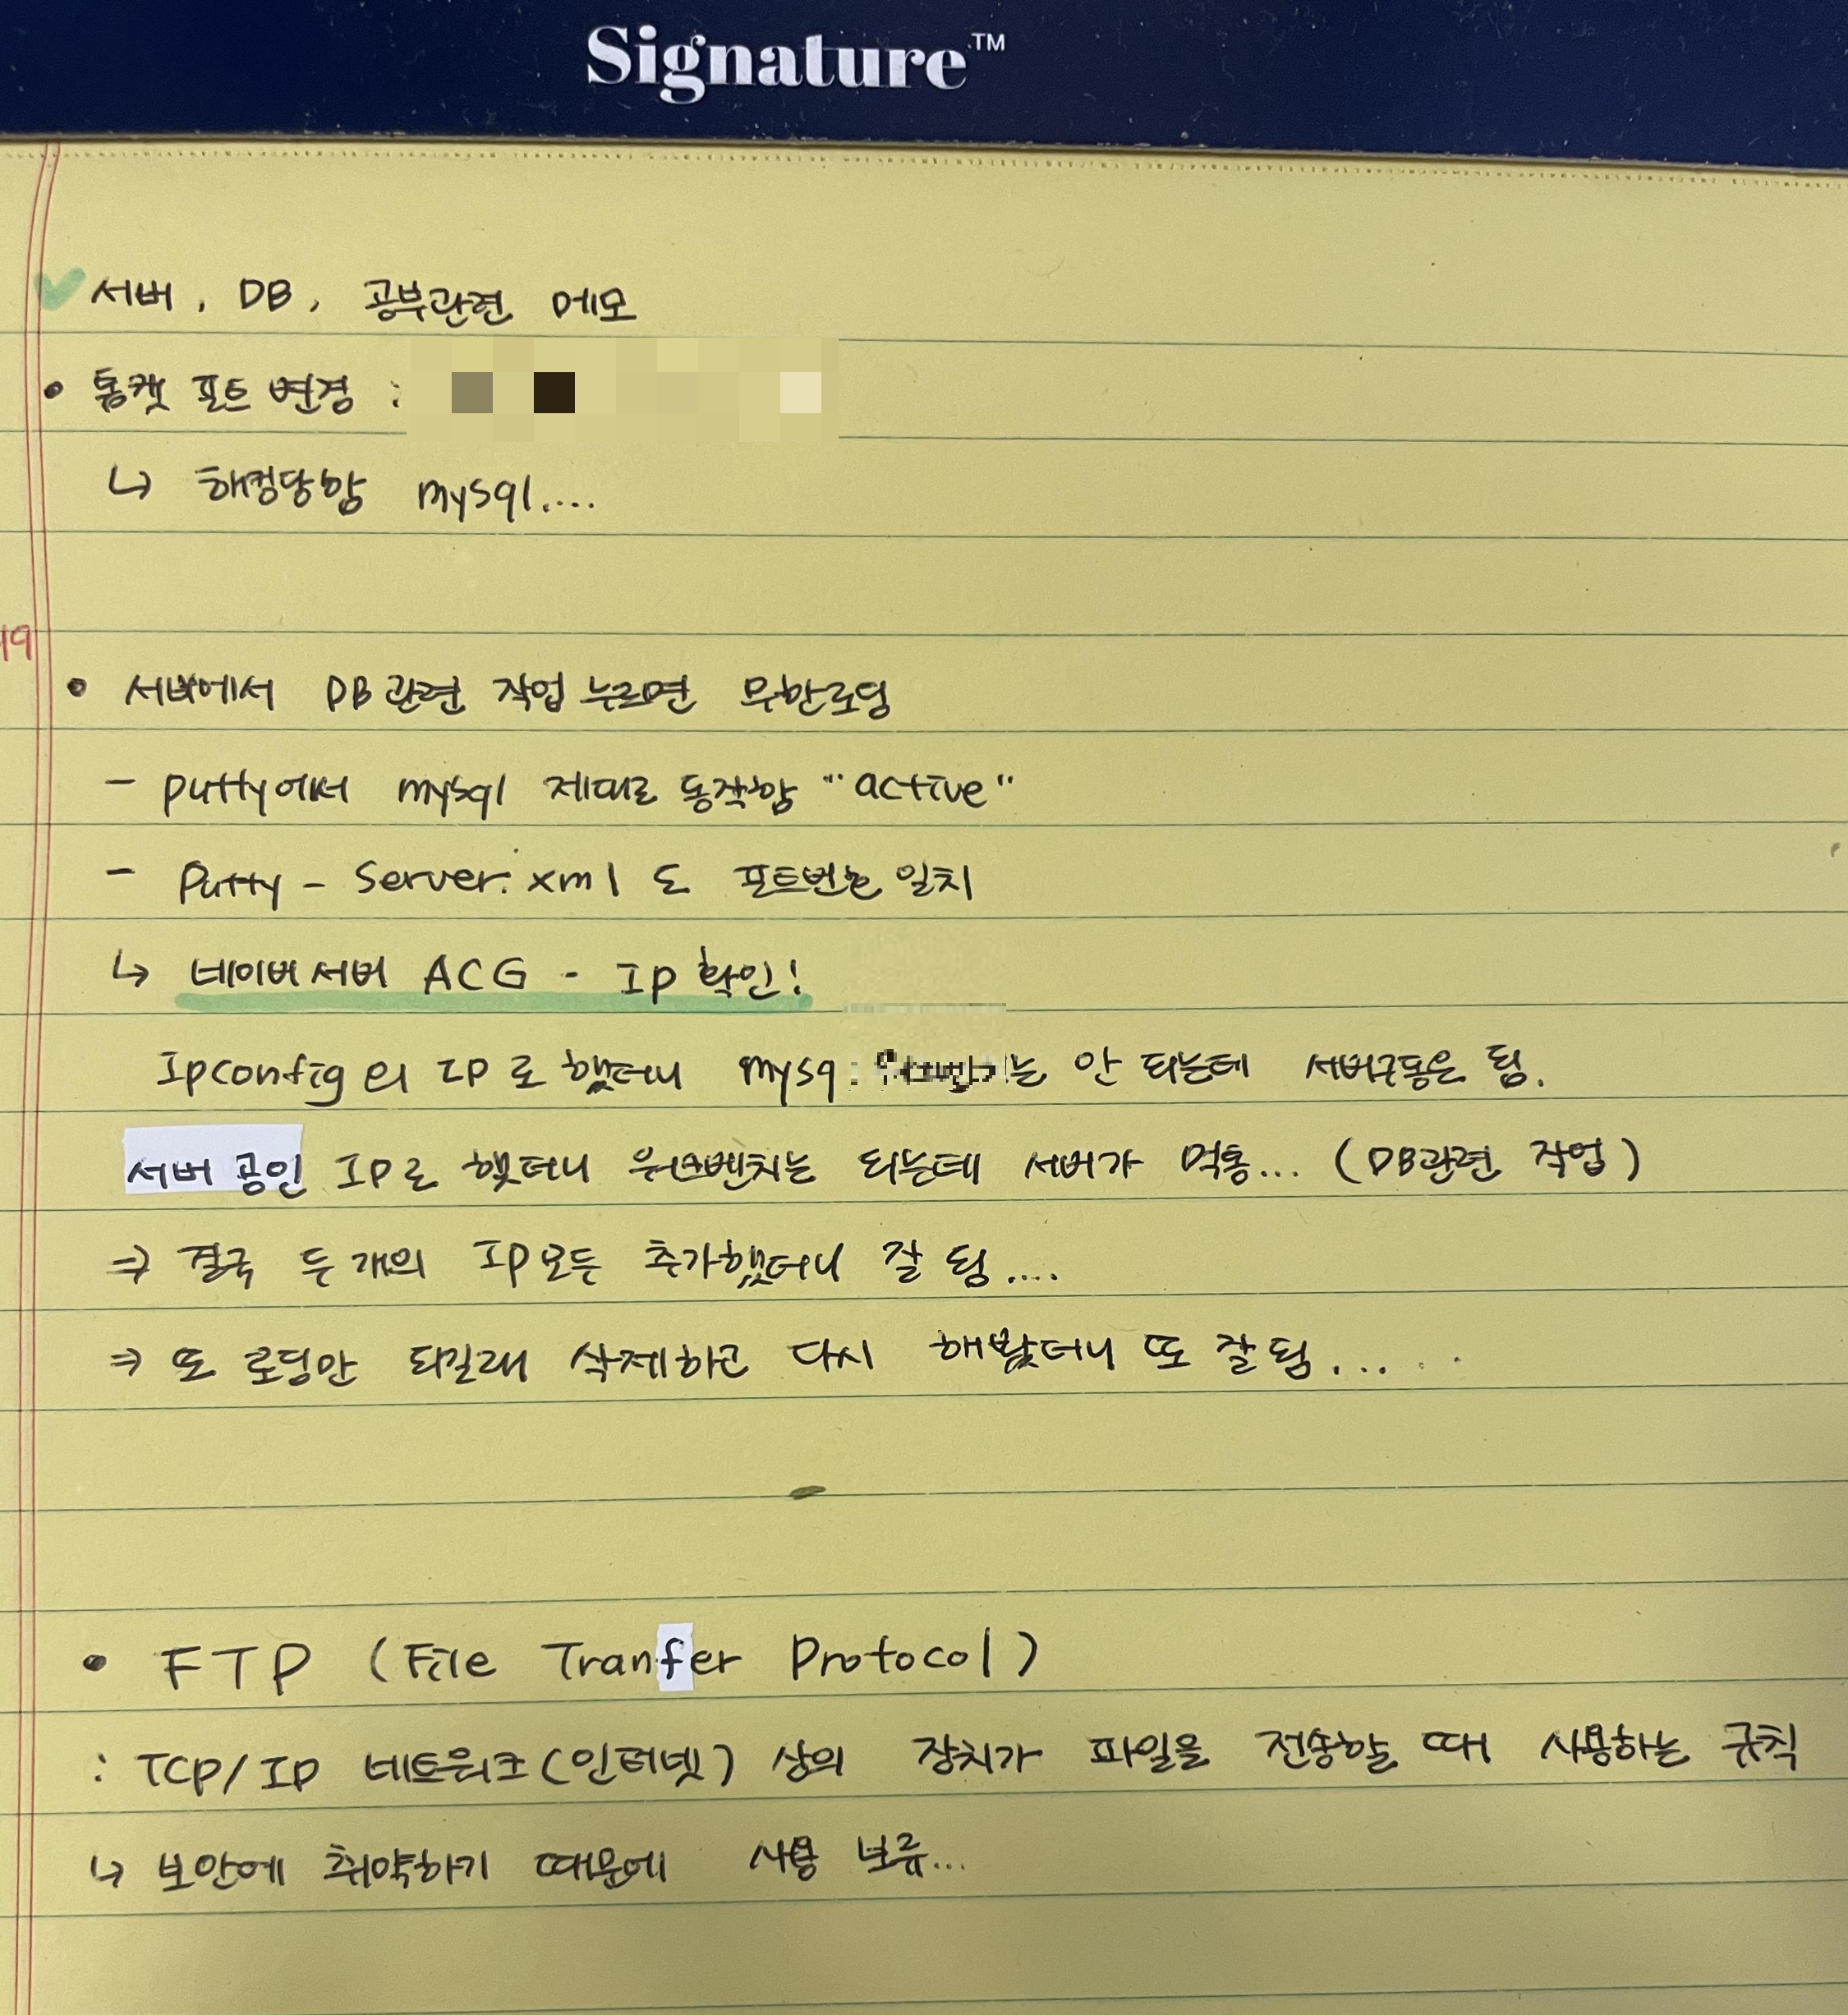 Signature™
서버, DB, 공부관련 메모
• 톰캣 포트 변경 :
↳ 해킹당함 mysql....
19
• 서버에서 DB관련 작업 누르면 무한로딩
- putty에서 mysql 제대로 동작함 "active"
- Putty - Server.xml 도 포트번호 일치
↳ 네이버서버 ACG - Ip 확인!
Ipconfig의 IP로 했더니 mysq 는 안 되는데 서버구동은 됨.
서버 공인 IP로 했더니 워크벤치는 되는데 서버가 먹통... (DB관련 작업)
⇒ 결국 두 개의 IP모두 추가했더니 잘 됨....
⇒ 또 로딩만 되길래 삭제하고 다시 해봤더니 또 잘됨.....
• FTP (File Tranfer Protocol)
: TCP/IP 네트워크(인터넷) 상의 장치가 파일을 전송할 때 사용하는 규칙
↳ 보안에 취약하기 때문에 사용 보류...